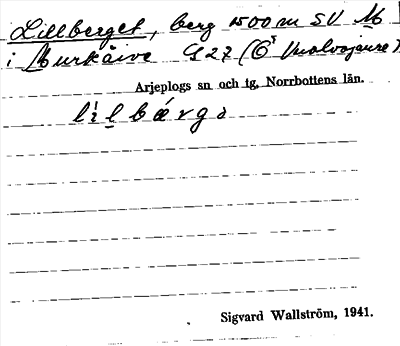 Lillberget, berg 1500 m SV M
i Murkåive S27 (Ö Vuolvojaure)
Arjeplogs sn och tg, Norrbottens län.
lilbærgə
Sigvard Wallström, 1941.